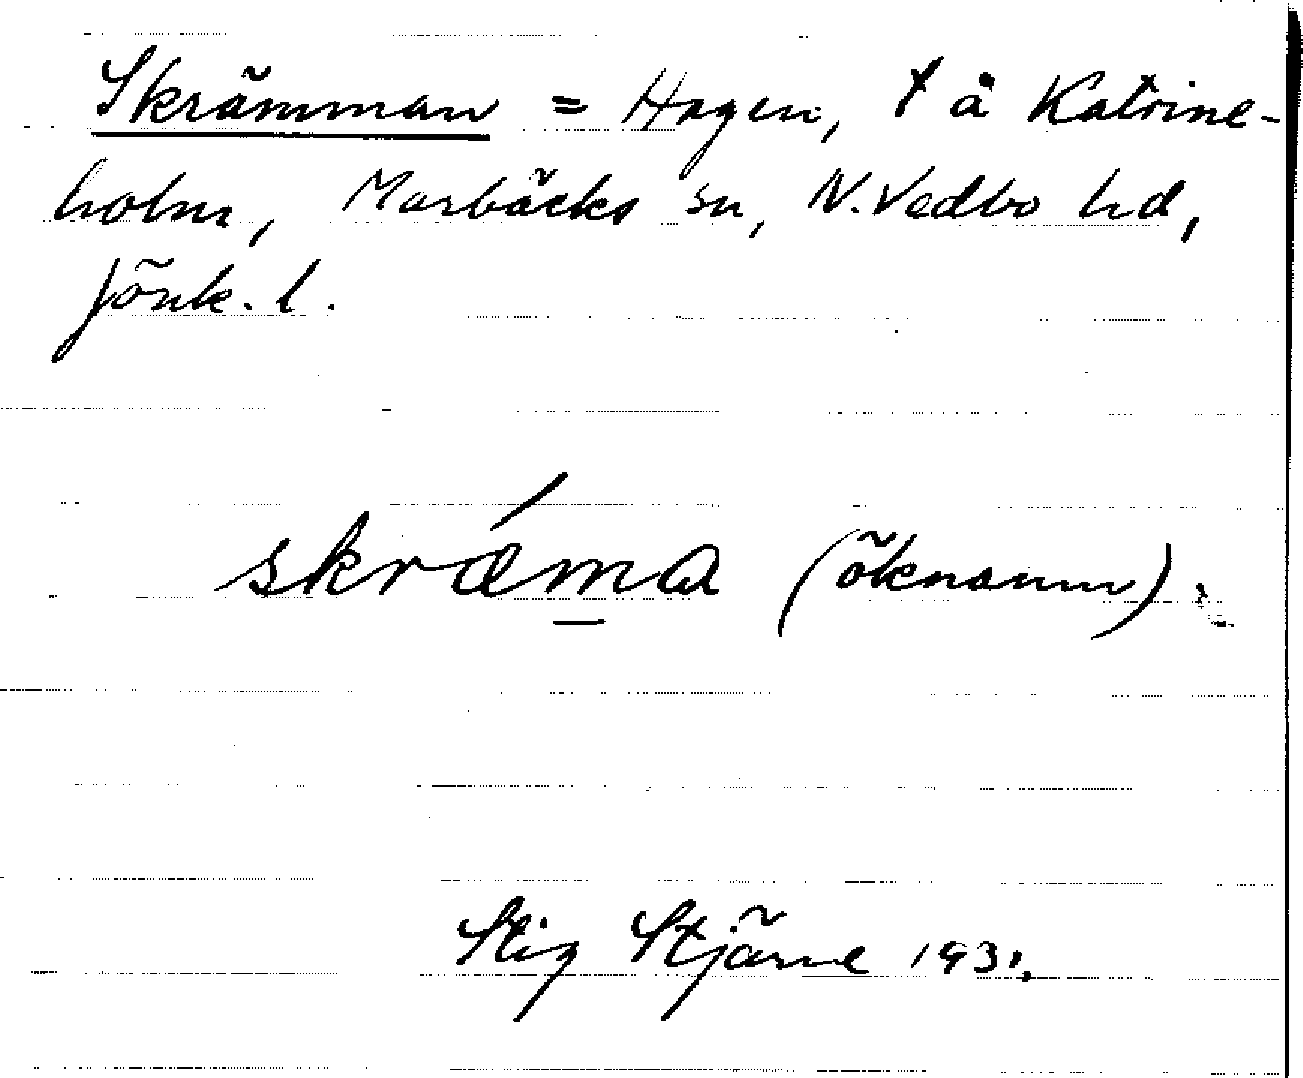 Skrämman = Hagen, t å Katrine-
holm, Marbäcks sn, N. Vedbo hd,
Jönk. l.
skrǽm̲a (öknamn).
Stig Stjärne 1931.